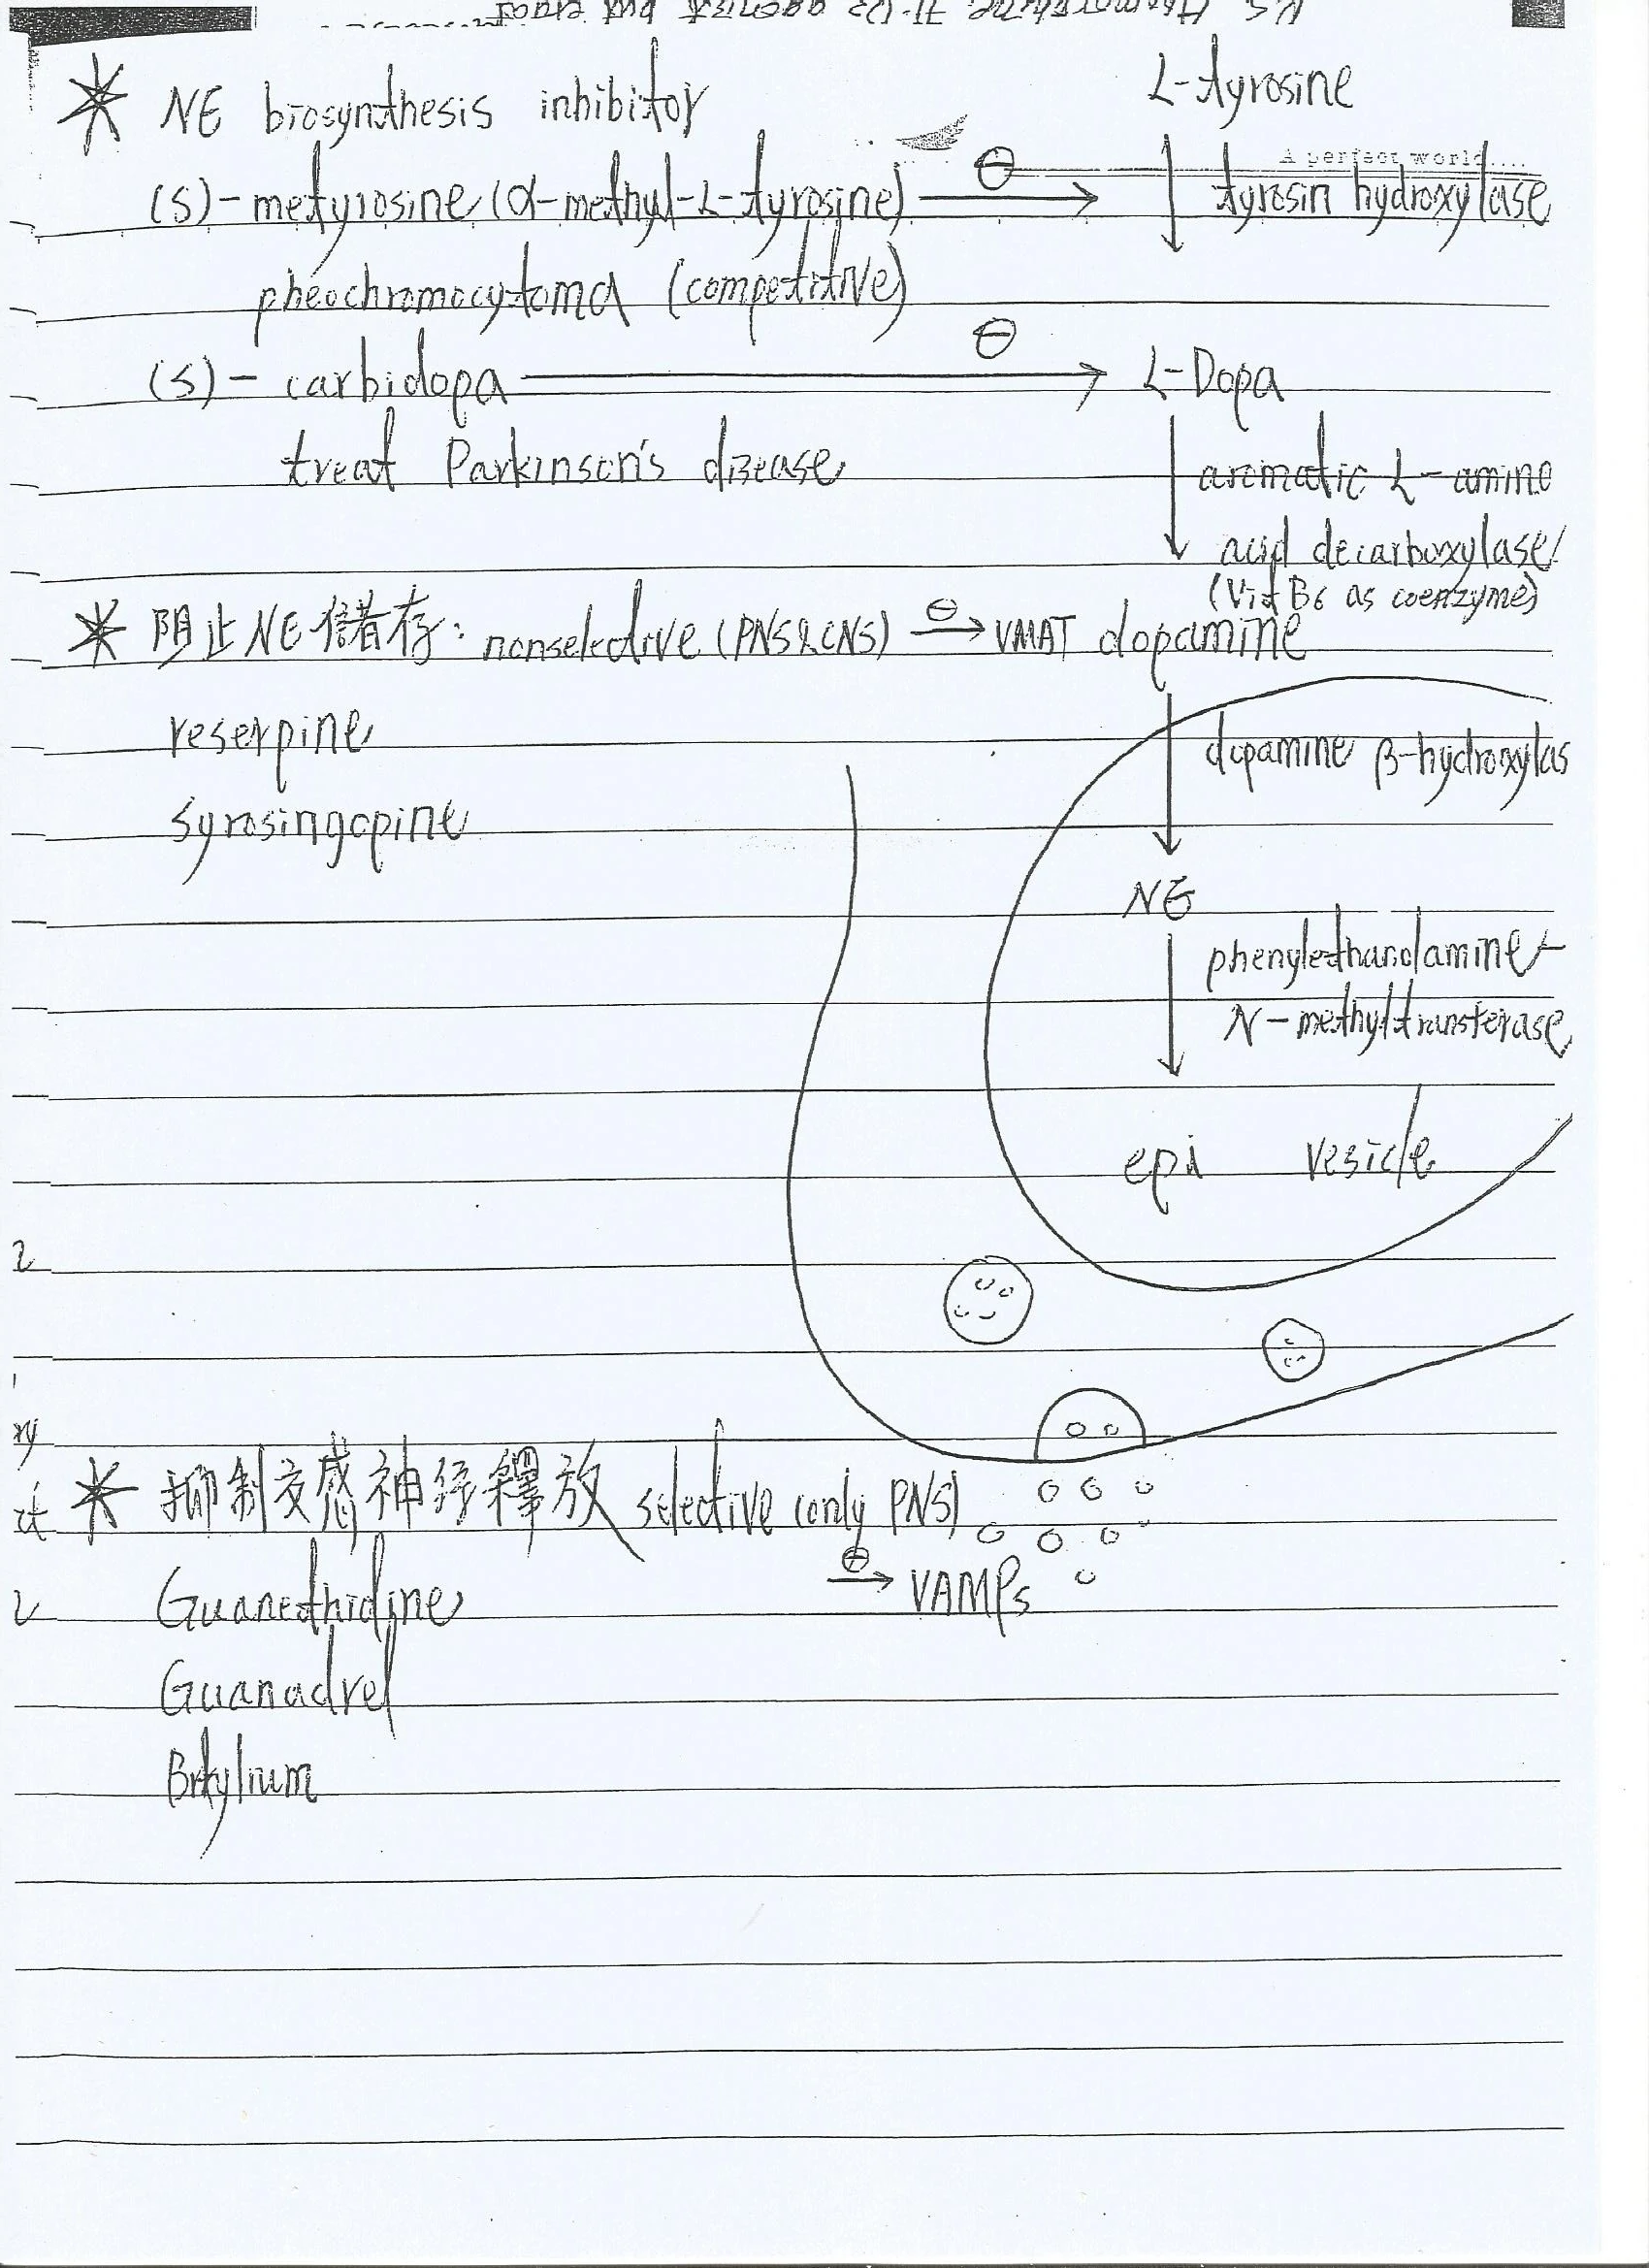 * NE biosynthesis inhibitor
L-tyrosine
A perfect world....
(S)-metyrosine (α-methyl-L-tyrosine) ⊖→
tyrosin hydroxylase
pheochromocytoma (competitive)
(S)-carbidopa ⊖→ L-Dopa
treat Parkinson's disease
aromatic L-amino
acid decarboxylase
(Vit B6 as coenzyme)
* 阻止NE儲存: nonselective (PNS&CNS) ⊖→ VMAT dopamine
reserpine
dopamine β-hydroxylas
syrosingopine
NE
phenylethanolamine-
N-methyltransferase
epi vesicle
* 抑制交感神经釋放 selective (only PNS)
⊖→ VAMPs
Guanethidine
Guanadrel